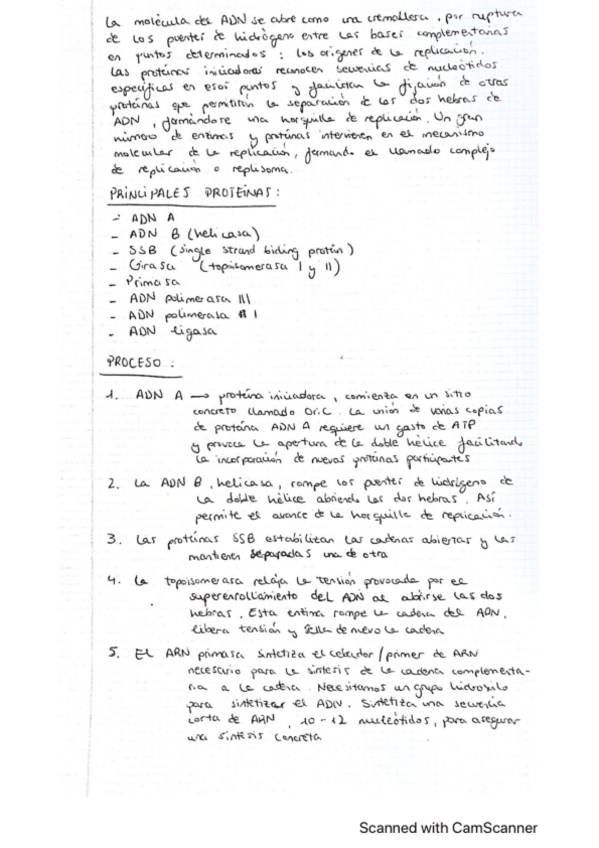 La molécula del ADN se abre como una cremallera, por ruptura
de los puentes de hidrógeno entre las bases complementarias
en puntos determinados: los orígenes de la replicación.
Las proteínas iniciadoras reconocen secuencias de nucleótidos
específicas en esos puntos y facilitan la fijación de otras
proteínas que permitirán la separación de las dos hebras de
ADN, formándose una horquilla de replicación. Un gran
número de enzimas y proteínas intervienen en el mecanismo
molecular de la replicación, formando el llamado complejo
de replicación o replisoma.
PRINCIPALES PROTEÍNAS:
- ADN A
- ADN B (helicasa)
- SSB (single strand biding protein)
- Girasa (topoisomerasa I y II)
- Primasa
- ADN polimerasa III
- ADN polimerasa I
- ADN ligasa
PROCESO:
1. ADN A → proteína iniciadora, comienza en un sitio
concreto llamado OriC. La unión de varias copias
de proteína ADN A requiere un gasto de ATP
y provoca la apertura de la doble hélice facilitando
la incorporación de nuevas proteínas participantes
2. La ADN B, helicasa, rompe los puentes de hidrógeno de
la doble hélice abriendo las dos hebras. Así
permite el avance de la horquilla de replicación.
3. Las proteínas SSB estabilizan las cadenas abiertas y las
mantienen separadas una de otra
4. La topoisomerasa relaja la tensión provocada por el
superenrollamiento del ADN al abrirse las dos
hebras. Esta enzima rompe la cadena del ADN,
libera tensión y sella de nuevo la cadena
5. El ARN primasa sintetiza el cebador/primer de ARN
necesario para la síntesis de la cadena complementa-
ria a la cadena. Necesitamos un grupo hidroxilo
para sintetizar el ADN. Sintetiza una secuencia
corta de ARN, 10-12 nucleótidos, para asegurar
una síntesis concreta
Scanned with CamScanner